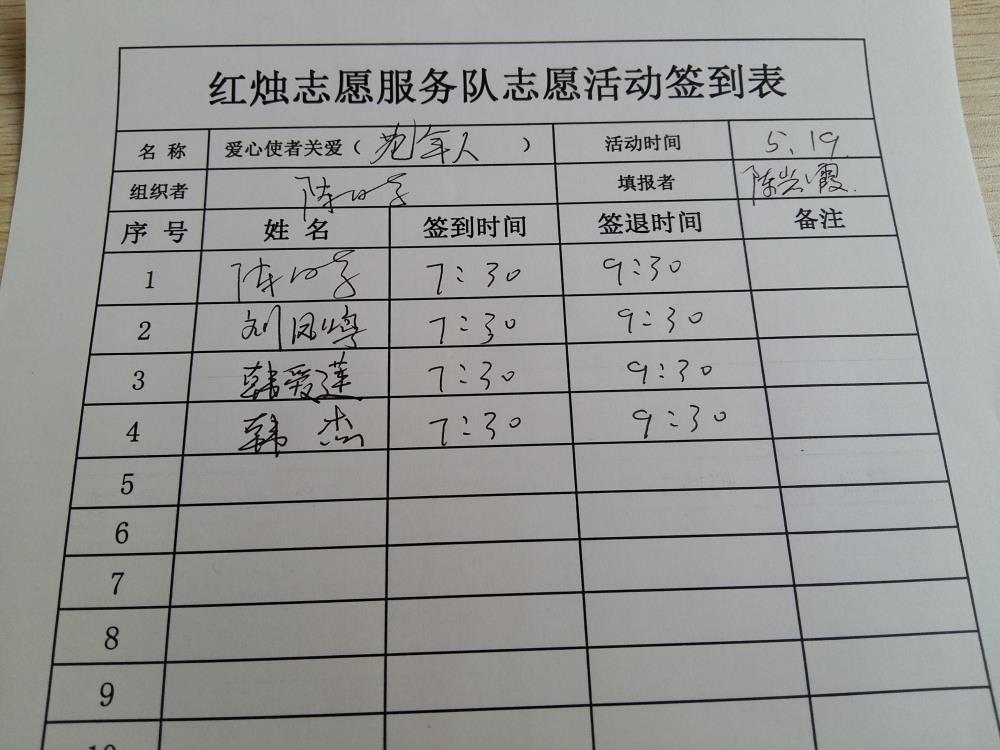 红烛志愿服务队志愿活动签到表
名 称 爱心使者关爱（ 老年人 ） 活动时间 5.19.
组织者 陈 填报者 陈兴霞.
序 号 姓 名 签到时间 签退时间 备注
1 陈 7:30 9:30
2 刘凤 7:30 9:30
3 韩爱莲 7:30 9:30
4 韩 杰 7:30 9:30
5
6
7
8
9
10